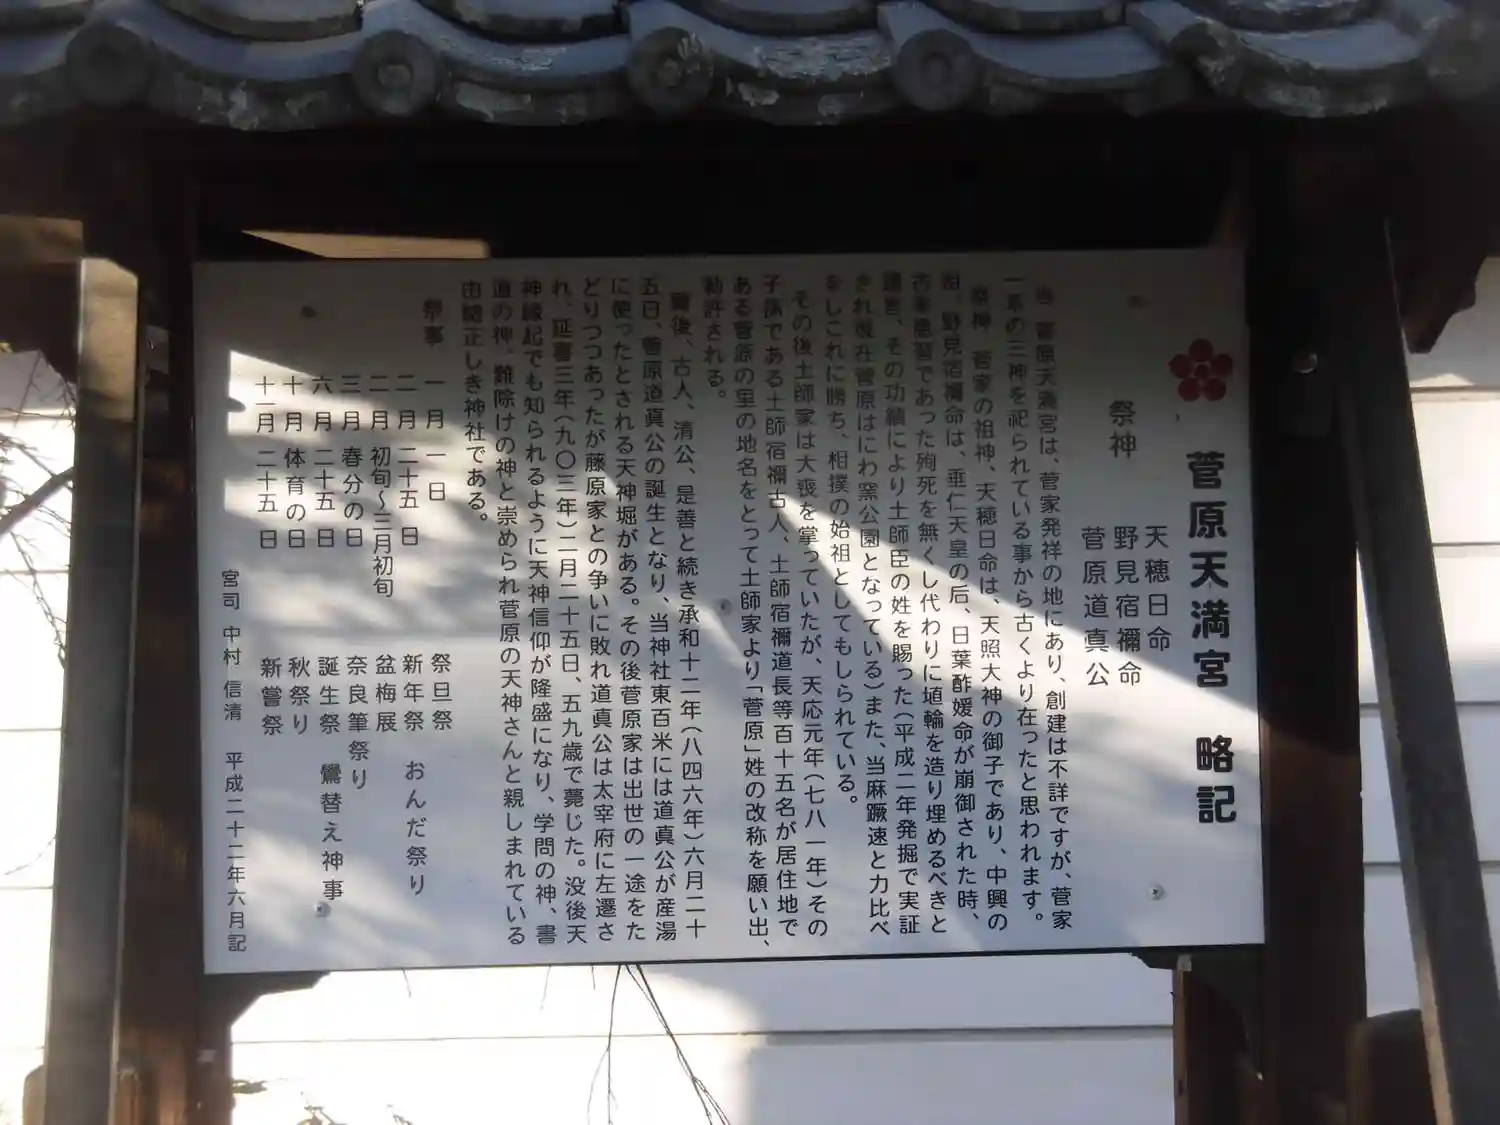 菅原天満宮 略記
祭神
天穂日命
野見宿禰命
菅原道真公
当、菅原天満宮は、菅家発祥の地にあり、創建は不詳ですが、菅家
一系の三神を祀られている事から古くより在ったと思われます。
祭神 菅家の祖神、天穂日命は、天照大神の御子であり、中興の
祖、野見宿禰命は、垂仁天皇の后、日葉酢媛命が崩御された時、
古来悪習であった殉死を無くし代わりに埴輪を造り埋めるべきと
建言、その功績により土師臣の姓を賜った(平成二年発掘で実証
され現在菅原はにわ窯公園となっている)また、当麻蹶速と力比べ
をしこれに勝ち、相撲の始祖としてもしられている。
その後土師家は大喪を掌っていたが、天応元年(七八一年)その
子孫である土師宿禰古人、土師宿禰道長等百十五名が居住地で
ある菅原の里の地名をとって土師家より「菅原」姓の改称を願い出、
勅許される。
爾後、古人、清公、是善と続き承和十二年(八四六年)六月二十
五日、菅原道真公の誕生となり、当神社東百米には道真公が産湯
に使ったとされる天神堀がある。その後菅原家は出世の一途をた
どりつつあったが藤原家との争いに敗れ道真公は太宰府に左遷さ
れ、延喜三年(九〇三年)二月二十五日、五九歳で薨じた。没後天
神縁起でも知られるように天神信仰が隆盛になり、学問の神、書
道の神、難除けの神と崇められ菅原の天神さんと親しまれている
由緒正しき神社である。
祭事
一月 一日 祭旦祭
二月 二十五日 新年祭 おんだ祭り
二月 初旬〜三月初旬 盆梅展
三月 春分の日 奈良筆祭り
六月 二十五日 誕生祭 鷽替え神事
十月 体育の日 秋祭り
十一月 二十五日 新嘗祭
宮司 中村 信清 平成二十二年六月記